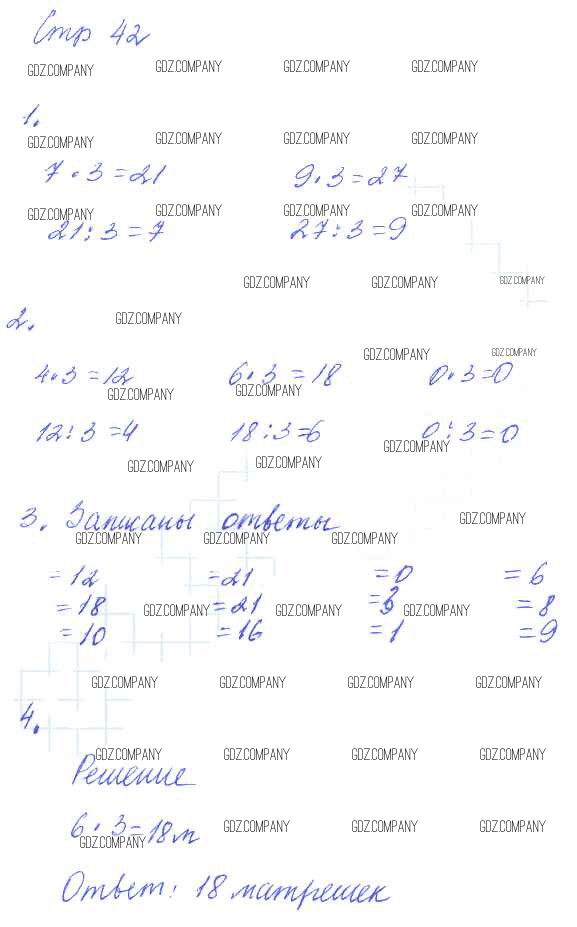 Стр 42
GDZ.COMPANY GDZ.COMPANY GDZ.COMPANY GDZ.COMPANY
1.
GDZ.COMPANY GDZ.COMPANY GDZ.COMPANY GDZ.COMPANY
7 · 3 = 21 9 · 3 = 27
GDZ.COMPANY GDZ.COMPANY GDZ.COMPANY GDZ.COMPANY
21 : 3 = 7 27 : 3 = 9
GDZ.COMPANY GDZ.COMPANY GDZ.COMPANY
2. GDZ.COMPANY
GDZ.COMPANY GDZ.COMPANY
4 · 3 = 12 6 · 3 = 18 0 · 3 = 0
GDZ.COMPANY GDZ.COMPANY
12 : 3 = 4 18 : 3 = 6 0 : 3 = 0
GDZ.COMPANY
GDZ.COMPANY GDZ.COMPANY
3. Записаны ответы GDZ.COMPANY
GDZ.COMPANY GDZ.COMPANY GDZ.COMPANY
= 12 = 21 = 0 = 6
= 18 GDZ.COMPANY = 21 GDZ.COMPANY = 3 GDZ.COMPANY = 8
= 10 = 16 = 1 = 9
GDZ.COMPANY GDZ.COMPANY GDZ.COMPANY GDZ.COMPANY
4.
GDZ.COMPANY GDZ.COMPANY GDZ.COMPANY GDZ.COMPANY
Решение
6 · 3 = 18 м GDZ.COMPANY GDZ.COMPANY GDZ.COMPANY
GDZ.COMPANY
Ответ: 18 матрешек